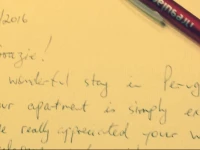 /2016
Grazie!
wonderful stay in Perug
ur apartment is simply ex
e really appreciated your w